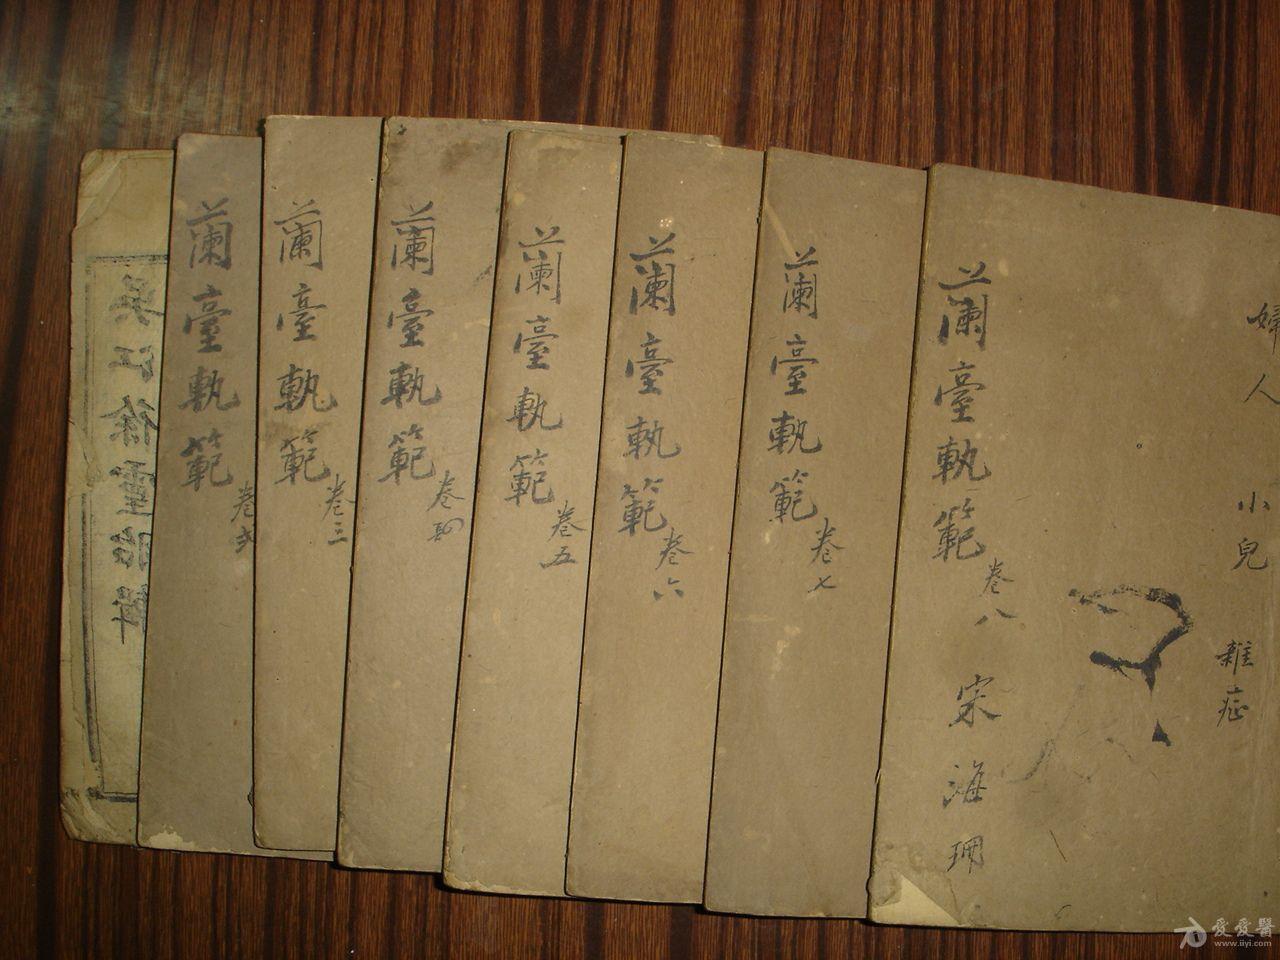 吴江徐靈胎輯
蘭臺軌範
卷弍
蘭臺軌範
卷三
蘭臺軌範
卷四
蘭臺軌範
卷五
蘭臺軌範
卷六
蘭臺軌範
卷七
蘭臺軌範
卷八
宋海珊
婦人 小兒 雜症
爱爱醫
www.iiyi.com